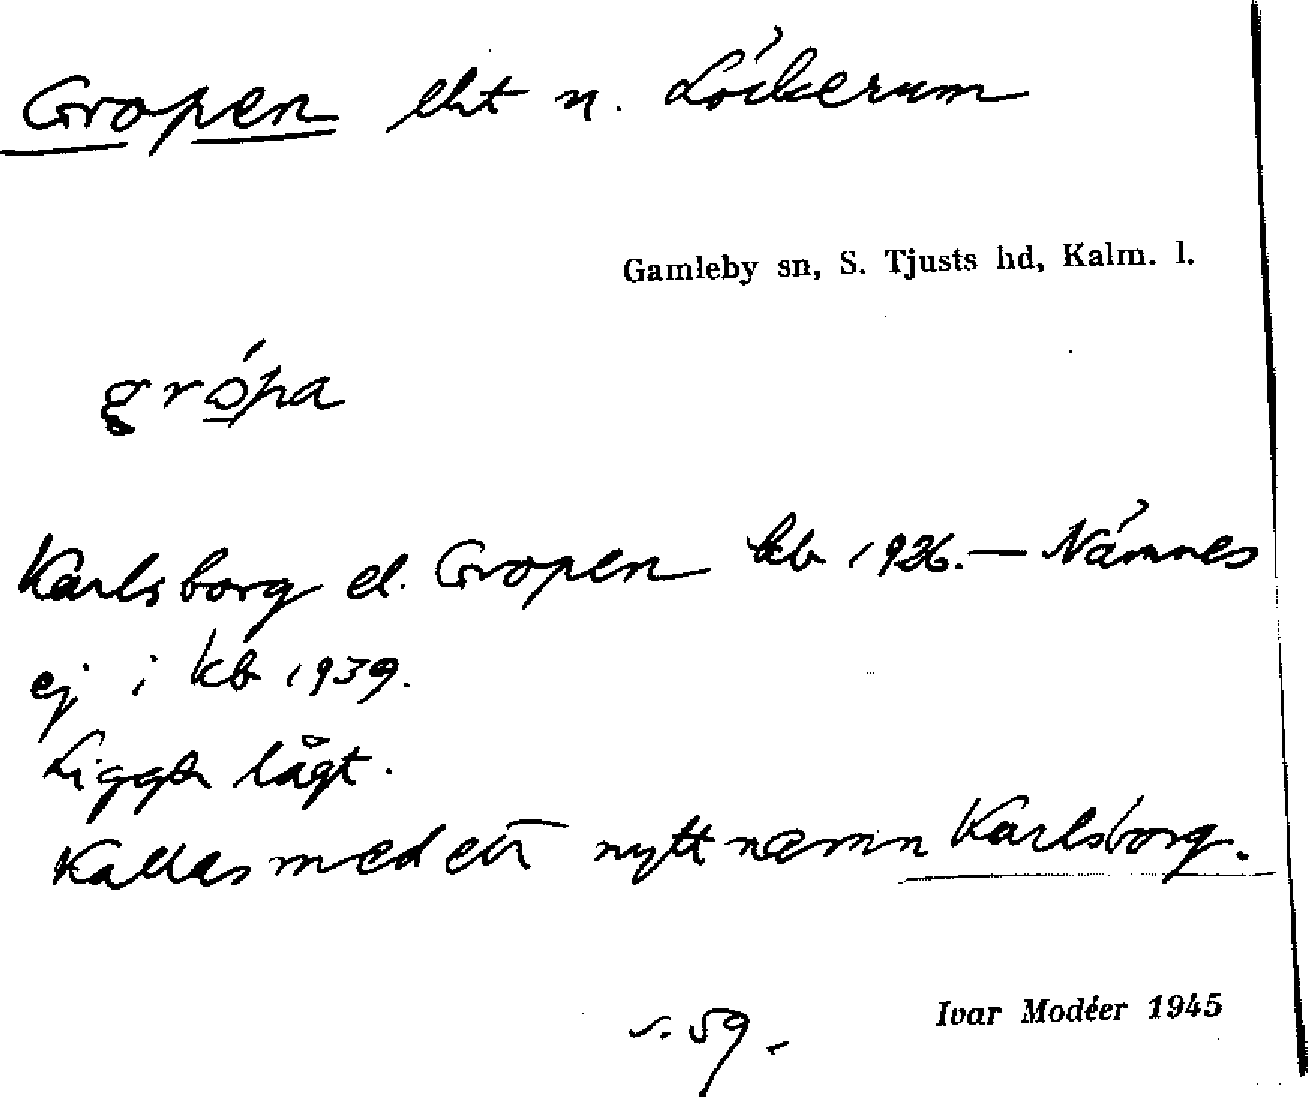 Gropen lht u. Löckerum
Gamleby sn, S. Tjusts hd, Kalm. l.
grópa
Karlsborg el. Gropen kb 1926. — Nämnes
ej i kb 1939.
Ligger lågt.
Kallas med ett nytt namn Karlsborg.
s. 59.
Ivar Modéer 1945